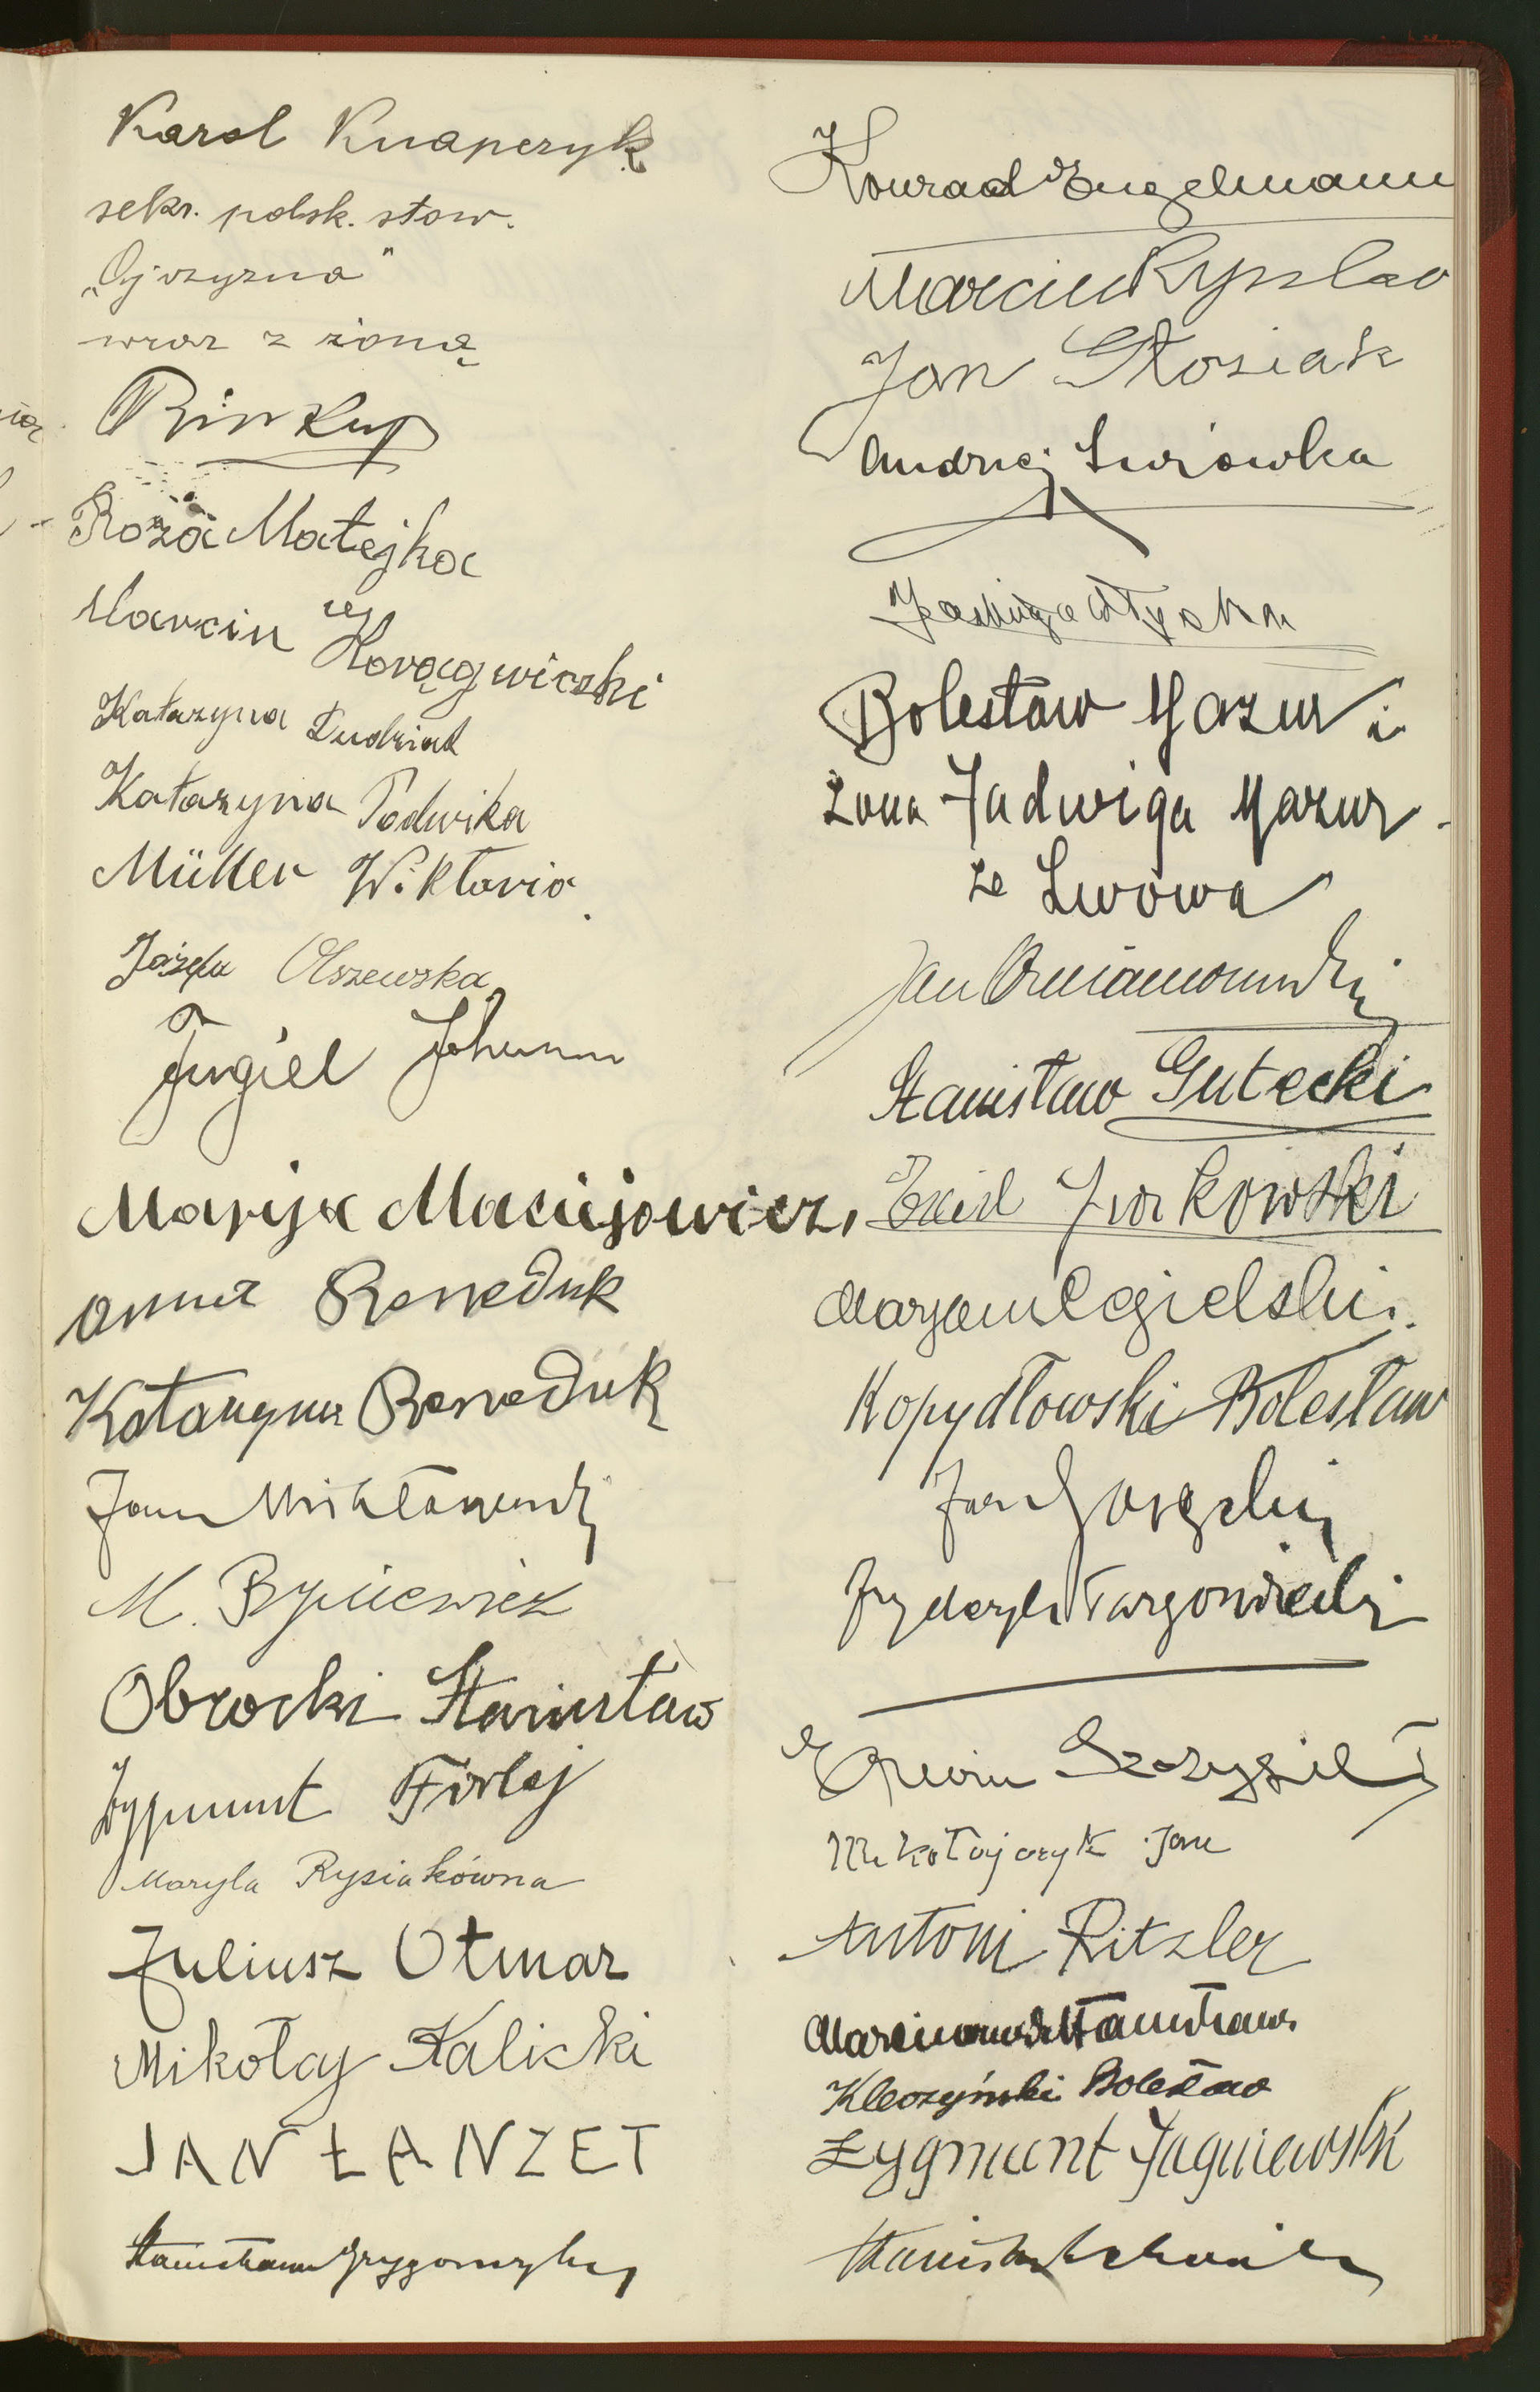 Karol Knapczyk
sekr. polsk. stow.
„Ojczyzna"
wraz z żoną
Róża Matejka
Marcin
Katarzyna Dudziak
Katarzyna Podwika
Müller Wiktoria
Józefa Olszewska
Jurgiel Johann
Maryja Maciejowicz,
Anna Benedük
Katarzyna Benedük
Jan
M. Rypniewicz
Obrocki Stanisław
Zygmunt Firlej
Maryla Rysiakówna
Juliusz Otmar
Mikołaj Kalicki
JAN ŁANZET
Stanisław
Konrad Engelmann
Marcin
Jan Stosiak
Andrzej
Jadwiga
Bolesław Mazur i
żona Jadwiga Mazur
ze Lwowa
Jan
Stanisław Gutecki
Emil
Maryan Cegielski.
Kopydłowski Bolesław
Jan
Fryderyk Targowiecki
Mikołajczyk Jan
Antoni Ritzler
Marcinowski Stanisław
Kleczyński Bolesław
Zygmunt Jagniewski
Stanisław